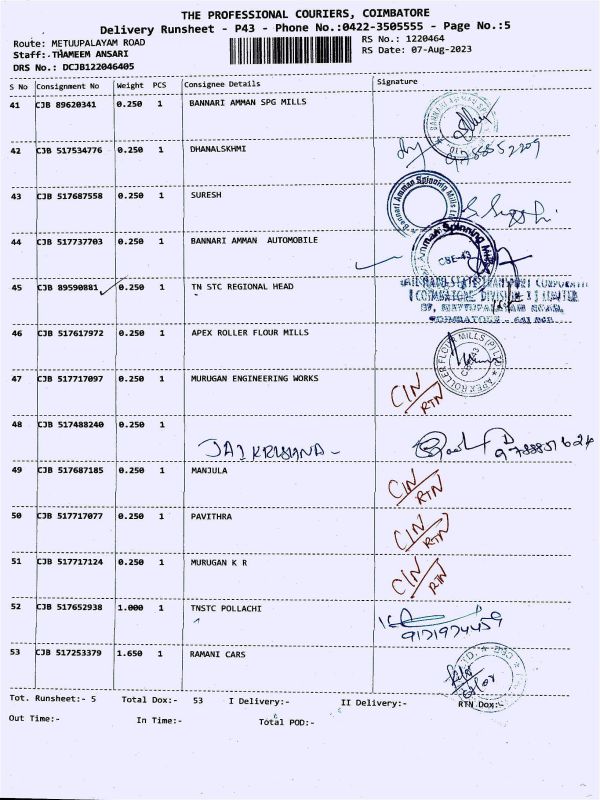 THE PROFESSIONAL COURIERS, COIMBATORE
Delivery Runsheet - P43 - Phone No.:0422-3505555 - Page No.:5
Route: METUUPALAYAM ROAD RS No.: 1220464
Staff: THAMEEM ANSARI RS Date: 07-Aug-2023
DRS No.: DCJB122046405
S No Consignment No Weight PCS Consignee Details Signature
41 CJB 89620341 0.250 1 BANNARI AMMAN SPG MILLS
42 CJB 517534776 0.250 1 DHANALSKHMI
43 CJB 517687558 0.250 1 SURESH
Bannari Amman Spinning Mills
44 CJB 517737703 0.250 1 BANNARI AMMAN AUTOMOBILE
Amman Spinning Mills
CBE-43
45 CJB 89590881 0.250 1 TN STC REGIONAL HEAD
46 CJB 517617972 0.250 1 APEX ROLLER FLOUR MILLS
APEX ROLLER FLOUR MILLS (P) LTD
47 CJB 517717097 0.250 1 MURUGAN ENGINEERING WORKS
CIN/RTN
48 CJB 517488240 0.250 1
JAI KRISHNA -
49 CJB 517687185 0.250 1 MANJULA
CIN/RTN
50 CJB 517717077 0.250 1 PAVITHRA
CIN/RTN
51 CJB 517717124 0.250 1 MURUGAN K R
CIN/RTN
52 CJB 517652938 1.000 1 TNSTC POLLACHI
9171974459
53 CJB 517253379 1.650 1 RAMANI CARS
Tot. Runsheet:- 5 Total Dox:- 53 I Delivery:- II Delivery:- RTN Dox:-
Out Time:- In Time:- Total POD:-